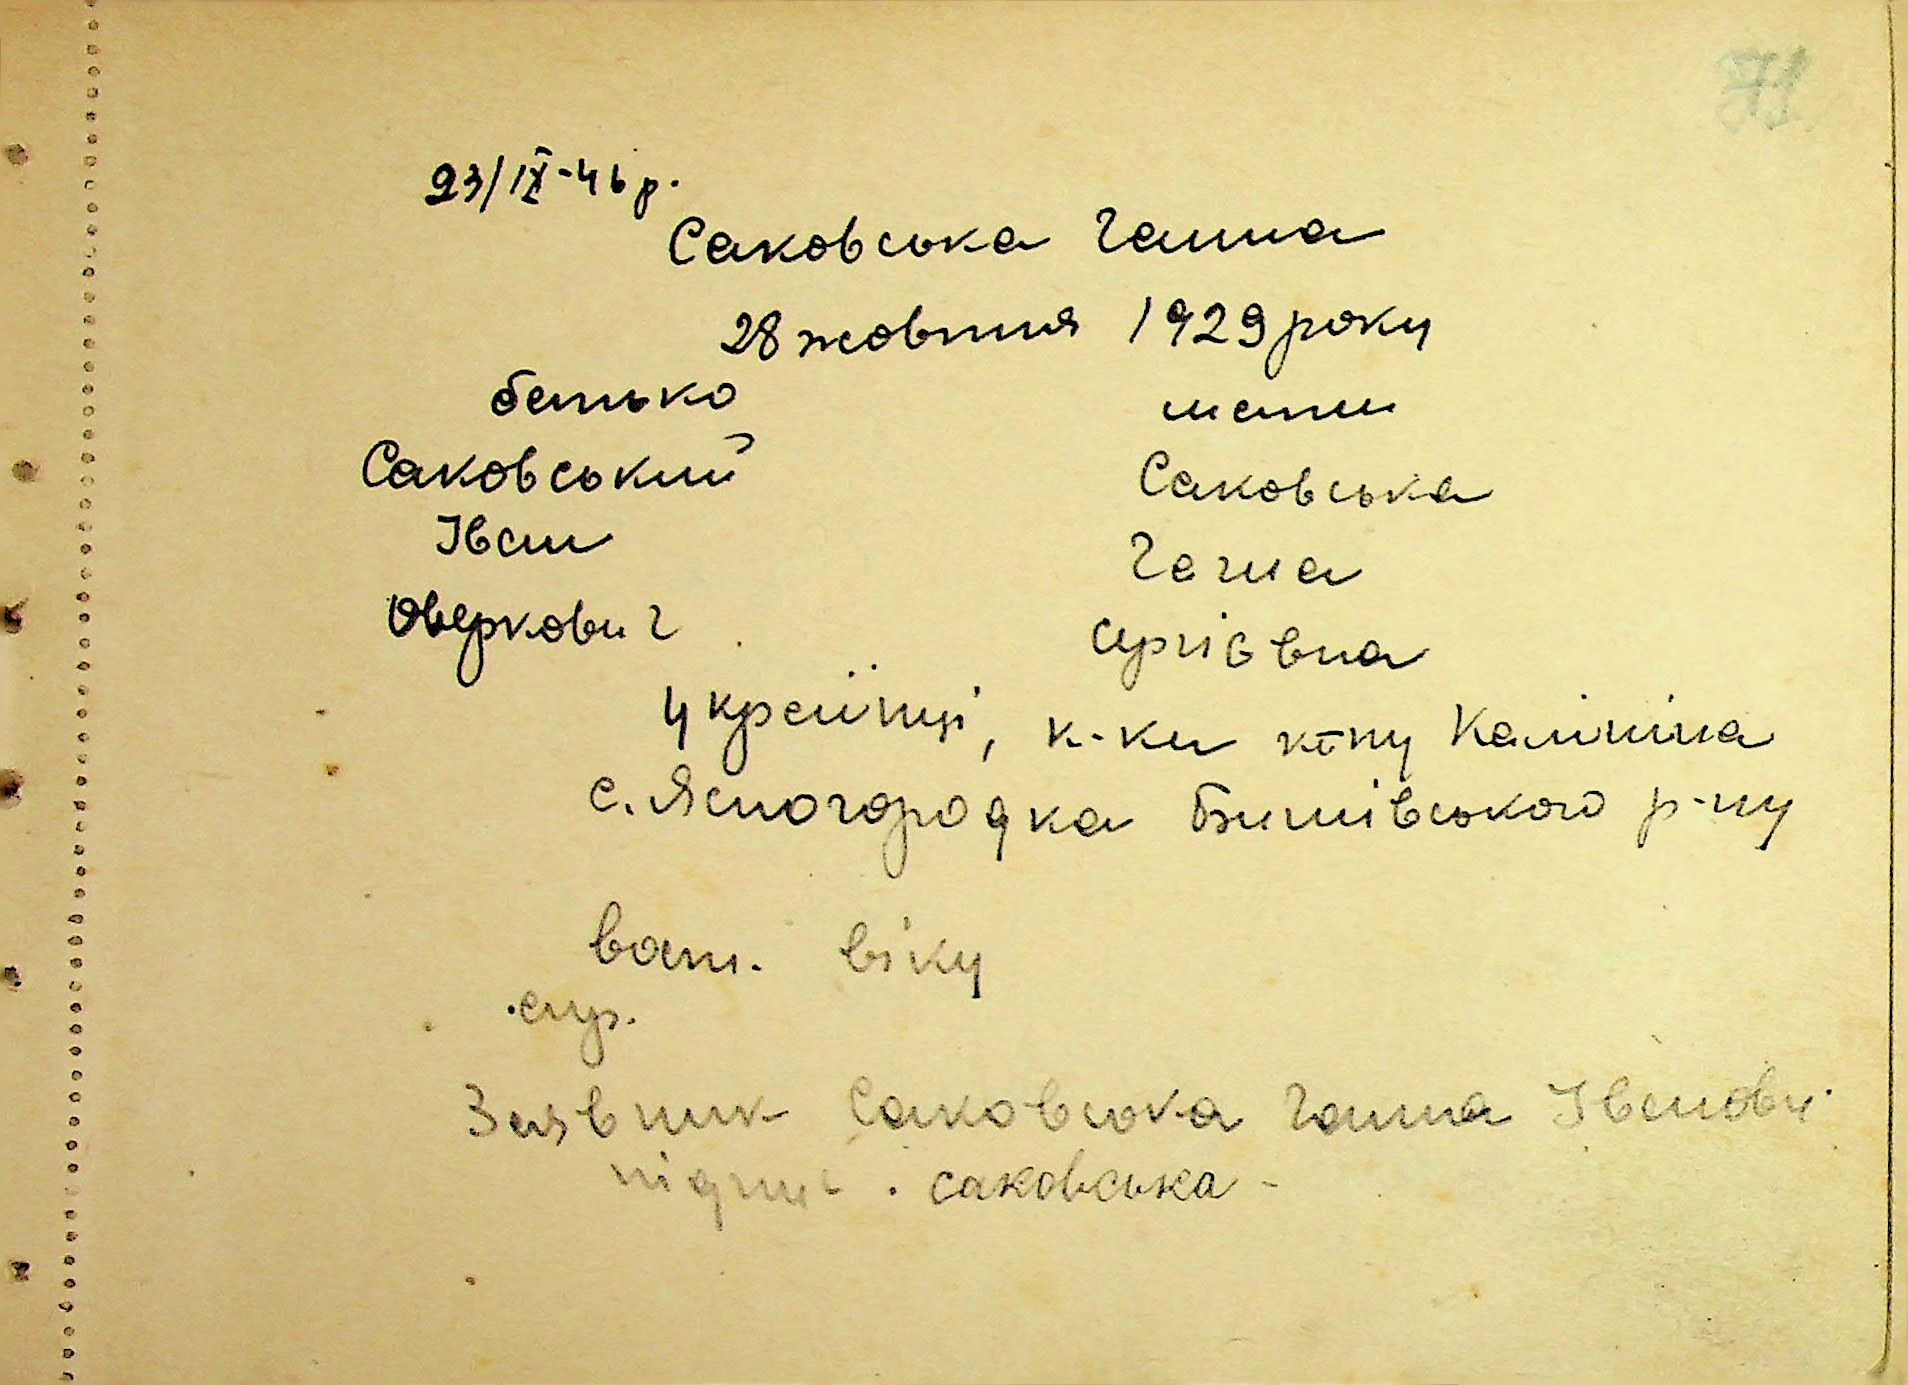 71
23/IX-46 р.
Саковська Ганна
28 жовтня 1929 року
батько мати
Саковський Саковська
Іван Ганна
Оверкович Сергіївна
Українці, к-ки к-пу Калініна
с. Ясногородка Бишівського р-ну
вст. віку
Заявник Саковська Ганна Іванов.
підпис. саковська -